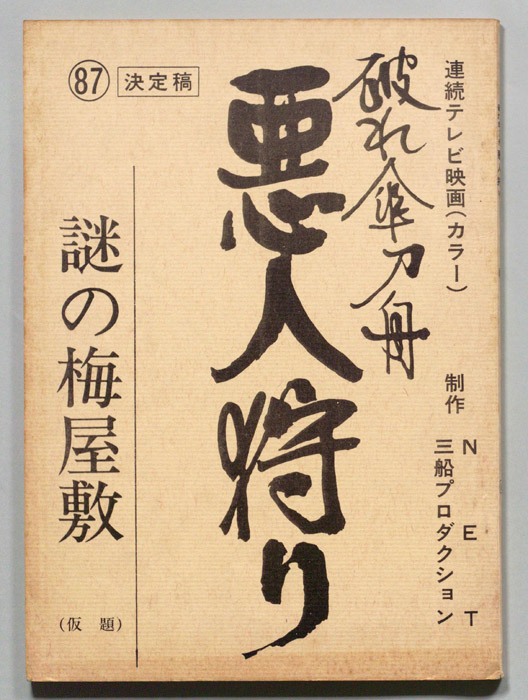 連続テレビ映画(カラー)
制作
NET
三船プロダクション
破れ傘刀舟
悪人狩り
87 決定稿
謎の梅屋敷
(仮題)